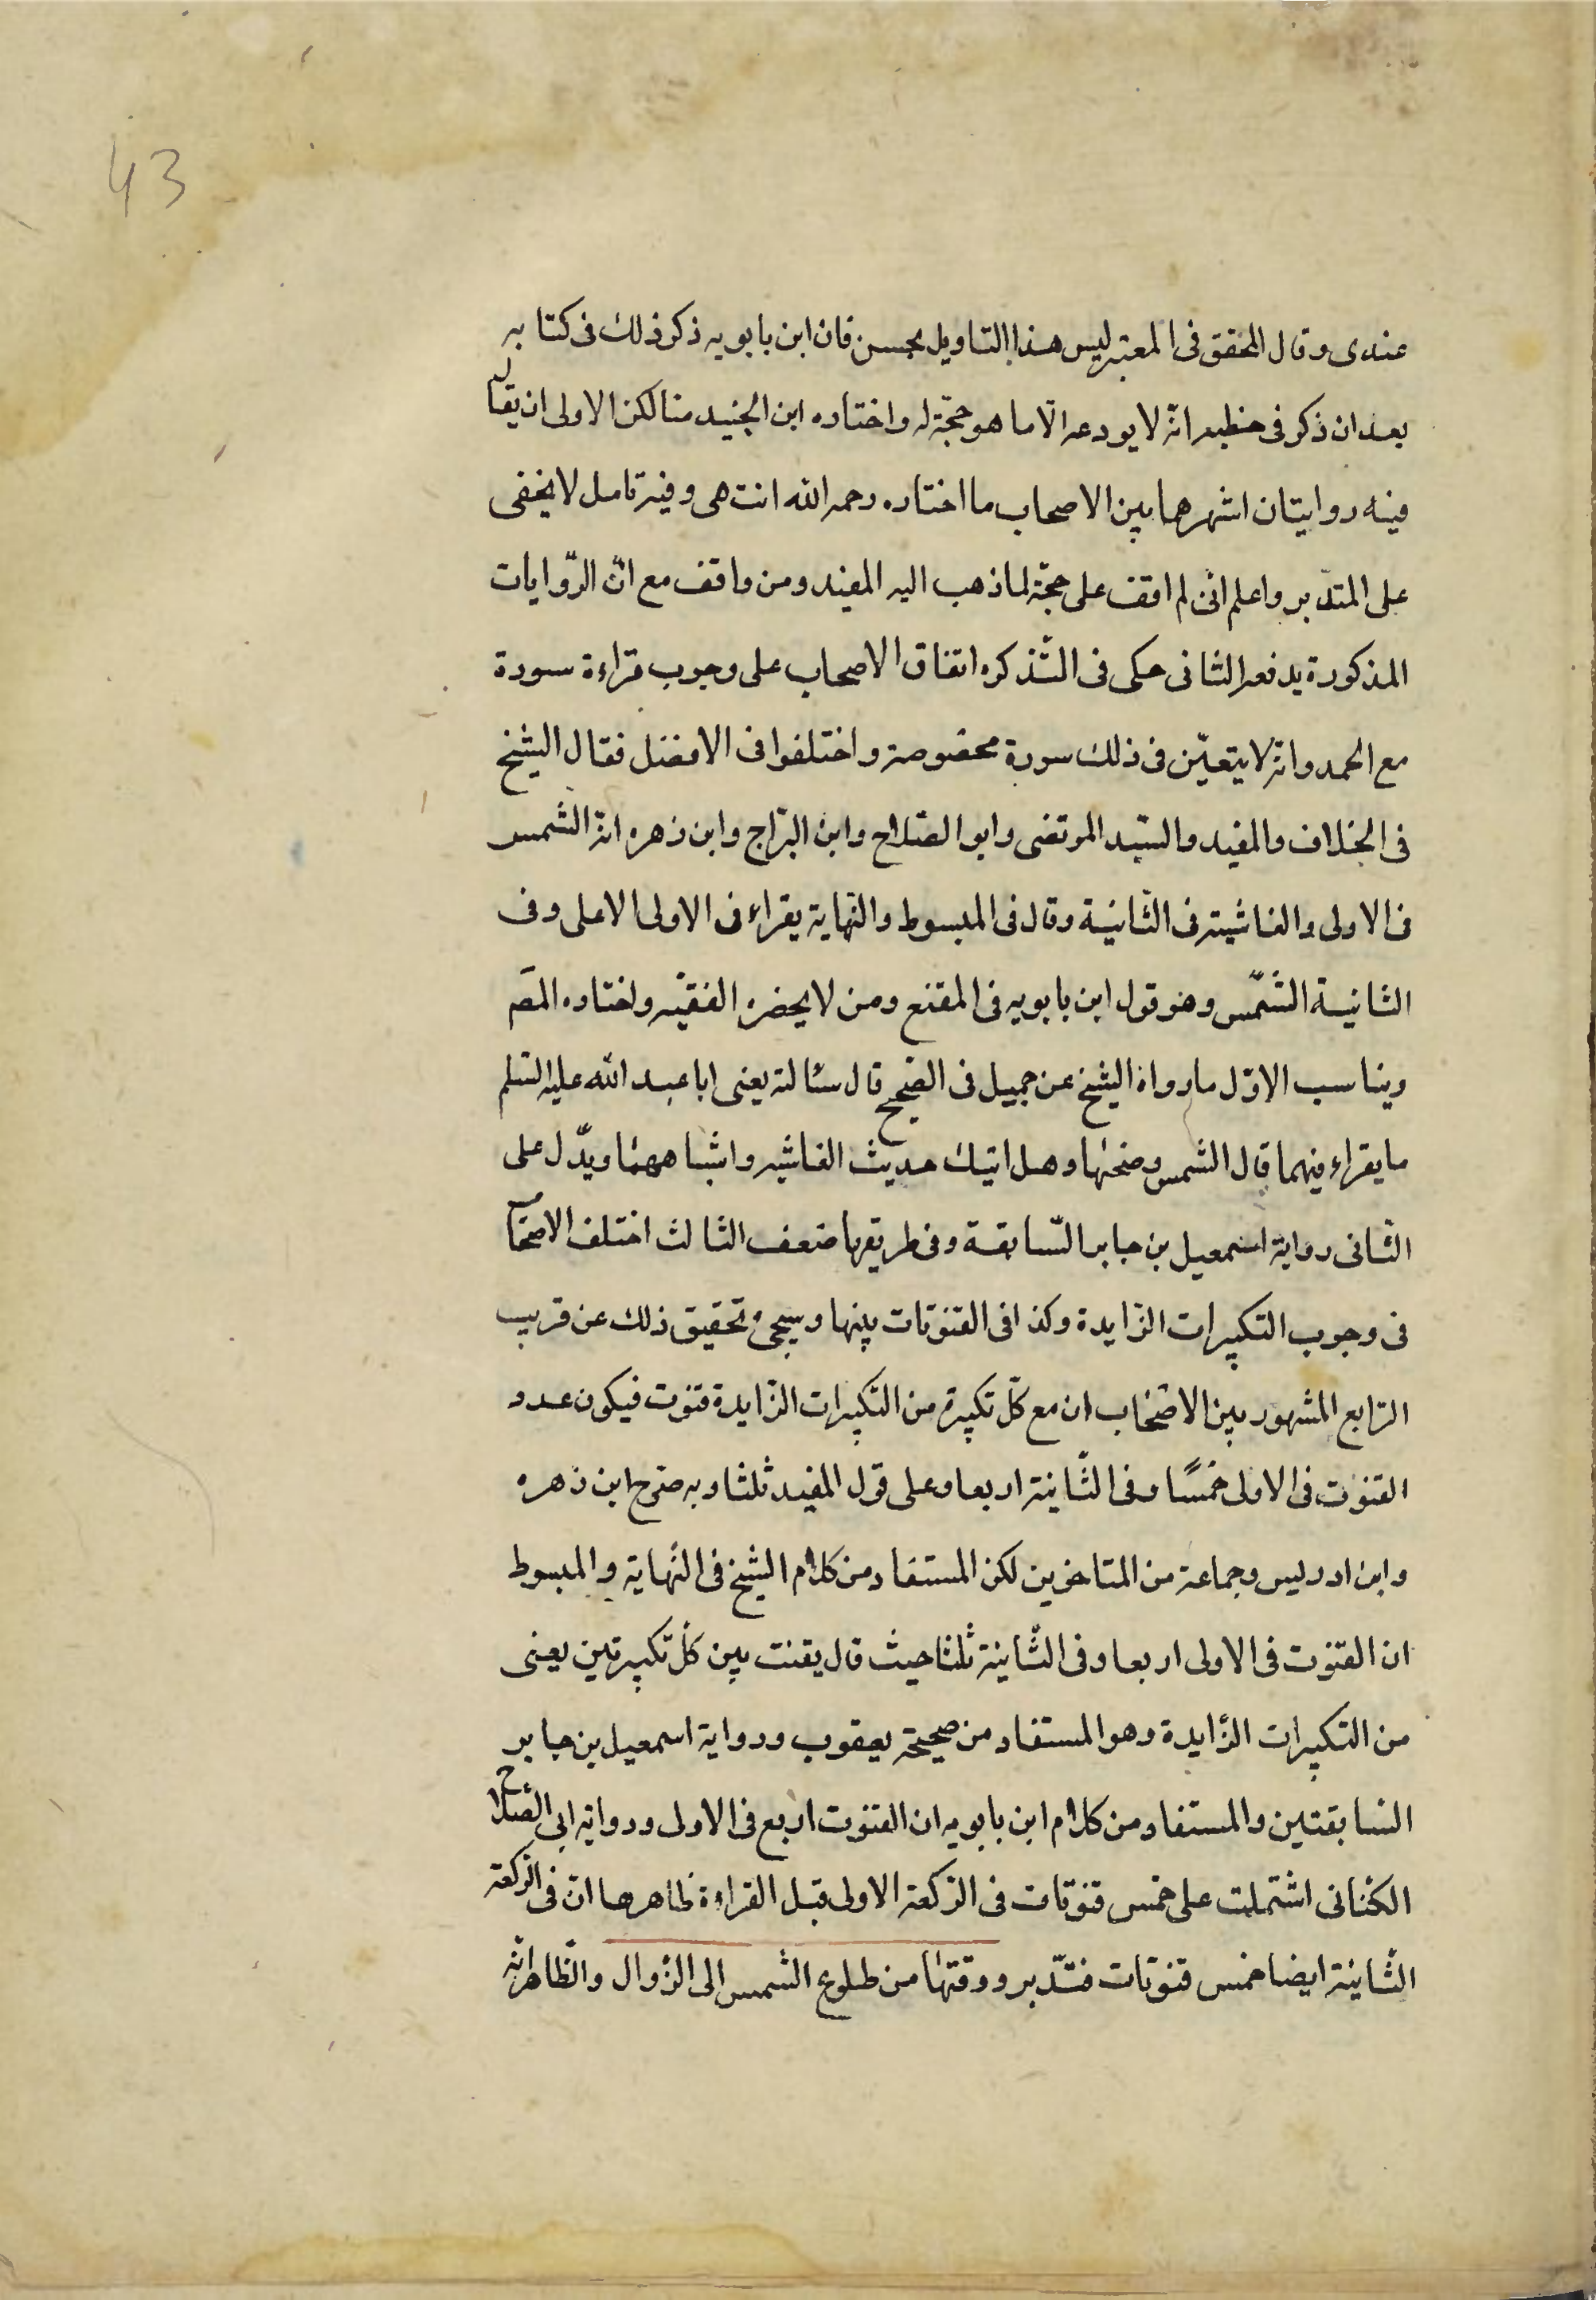 43
عندى وقال المحقق فى المعتبر ليس هذا التاويل بحسن فان ابن بابويه ذكر ذلك فى كتابه
بعد ان ذكر فى خطبته انّه لا يودعه الّا ما هو حجّة له واختاره ابن الجنيد منا لكن الاولى ان يقال
فيه روايتان اشهرهما بين الاصحاب ما اختاره رحمه الله انتهى وفيه تامل لا يخفى
على المتدّبر واعلم انّى لم اقف على حجّة لما ذهب اليه المفيد ومن وافقه مع انّ الرّوايات
المذكورة يدفعه الثانى حكى فى التّذكره اتفاق الاصحاب على وجوب قراءة سورة
مع الحمد وانّه لا يتعيّن فى ذلك سورة مخصوصة واختلفوا فى الافضل فقال الشيخ
فى الخلاف والمفيد والسّيد المرتضى وابو الصّلاح وابن البرّاج وابن زهره انّه الشمس
فى الاولى والغاشية فى الثّانية وقال فى المبسوط والنّهاية يقراء فى الاولى الاعلى وفى
الثانية الشّمس وهو قول ابن بابويه فى المقنع ومن لا يحضره الفقيه واختاره المصَ
ويناسب الاوّل ما رواه الشيخ عن جميل فى الصّحيح قال سئالته يعنى ابا عبد الله عليه السّلم
ما يقراء فيهما قال الشمس وضحٰها وهل اتيك حديث الغاشيه واشباههما ويدّل على
الثّانى رواية اسمعيل بن جابر السّابقة وفى طريقها ضعف الثالث اختلف الاصحاب
فى وجوب التكبيرات الزّايدة وكذا فى القنوتات بينها وسيجىء تحقيق ذلك عن قريب
الرّابع المشهور بين الاصحاب ان مع كلّ تكبيرة من التّكبيرات الزّايدة قنوت فيكون عدد
القنوت فى الاولى خمسًا وفى الثّانية اربعا وعلى قول المفيد ثلثا وبه صرّح ابن زهره
وابن ادريس وجماعة من المتاخرين لكن المستفاد من كلام الشيخ فى النّهاية والمبسوط
ان القنوت فى الاولى اربعا وفى الثّانية ثلثا حيث قال يقنت بين كلّ تكبيرتين يعنى
من التكبيرات الزّايدة وهو المستفاد من صحيحة يعقوب ورواية اسمعيل بن جابر
السّابقتين والمستفاد من كلام ابن بابويه ان القنوت اربع فى الاولى ورواية ابى الصّلاح
الكنانى اشتملت على خمس قنوتات فى الرّكعة الاولى قبل القراءة ظاهرها انّ فى الرّكعة
الثّانية ايضا خمس قنوتات فتدّبر ووقتها من طلوع الشّمس الى الزّوال والظّاهر انّه